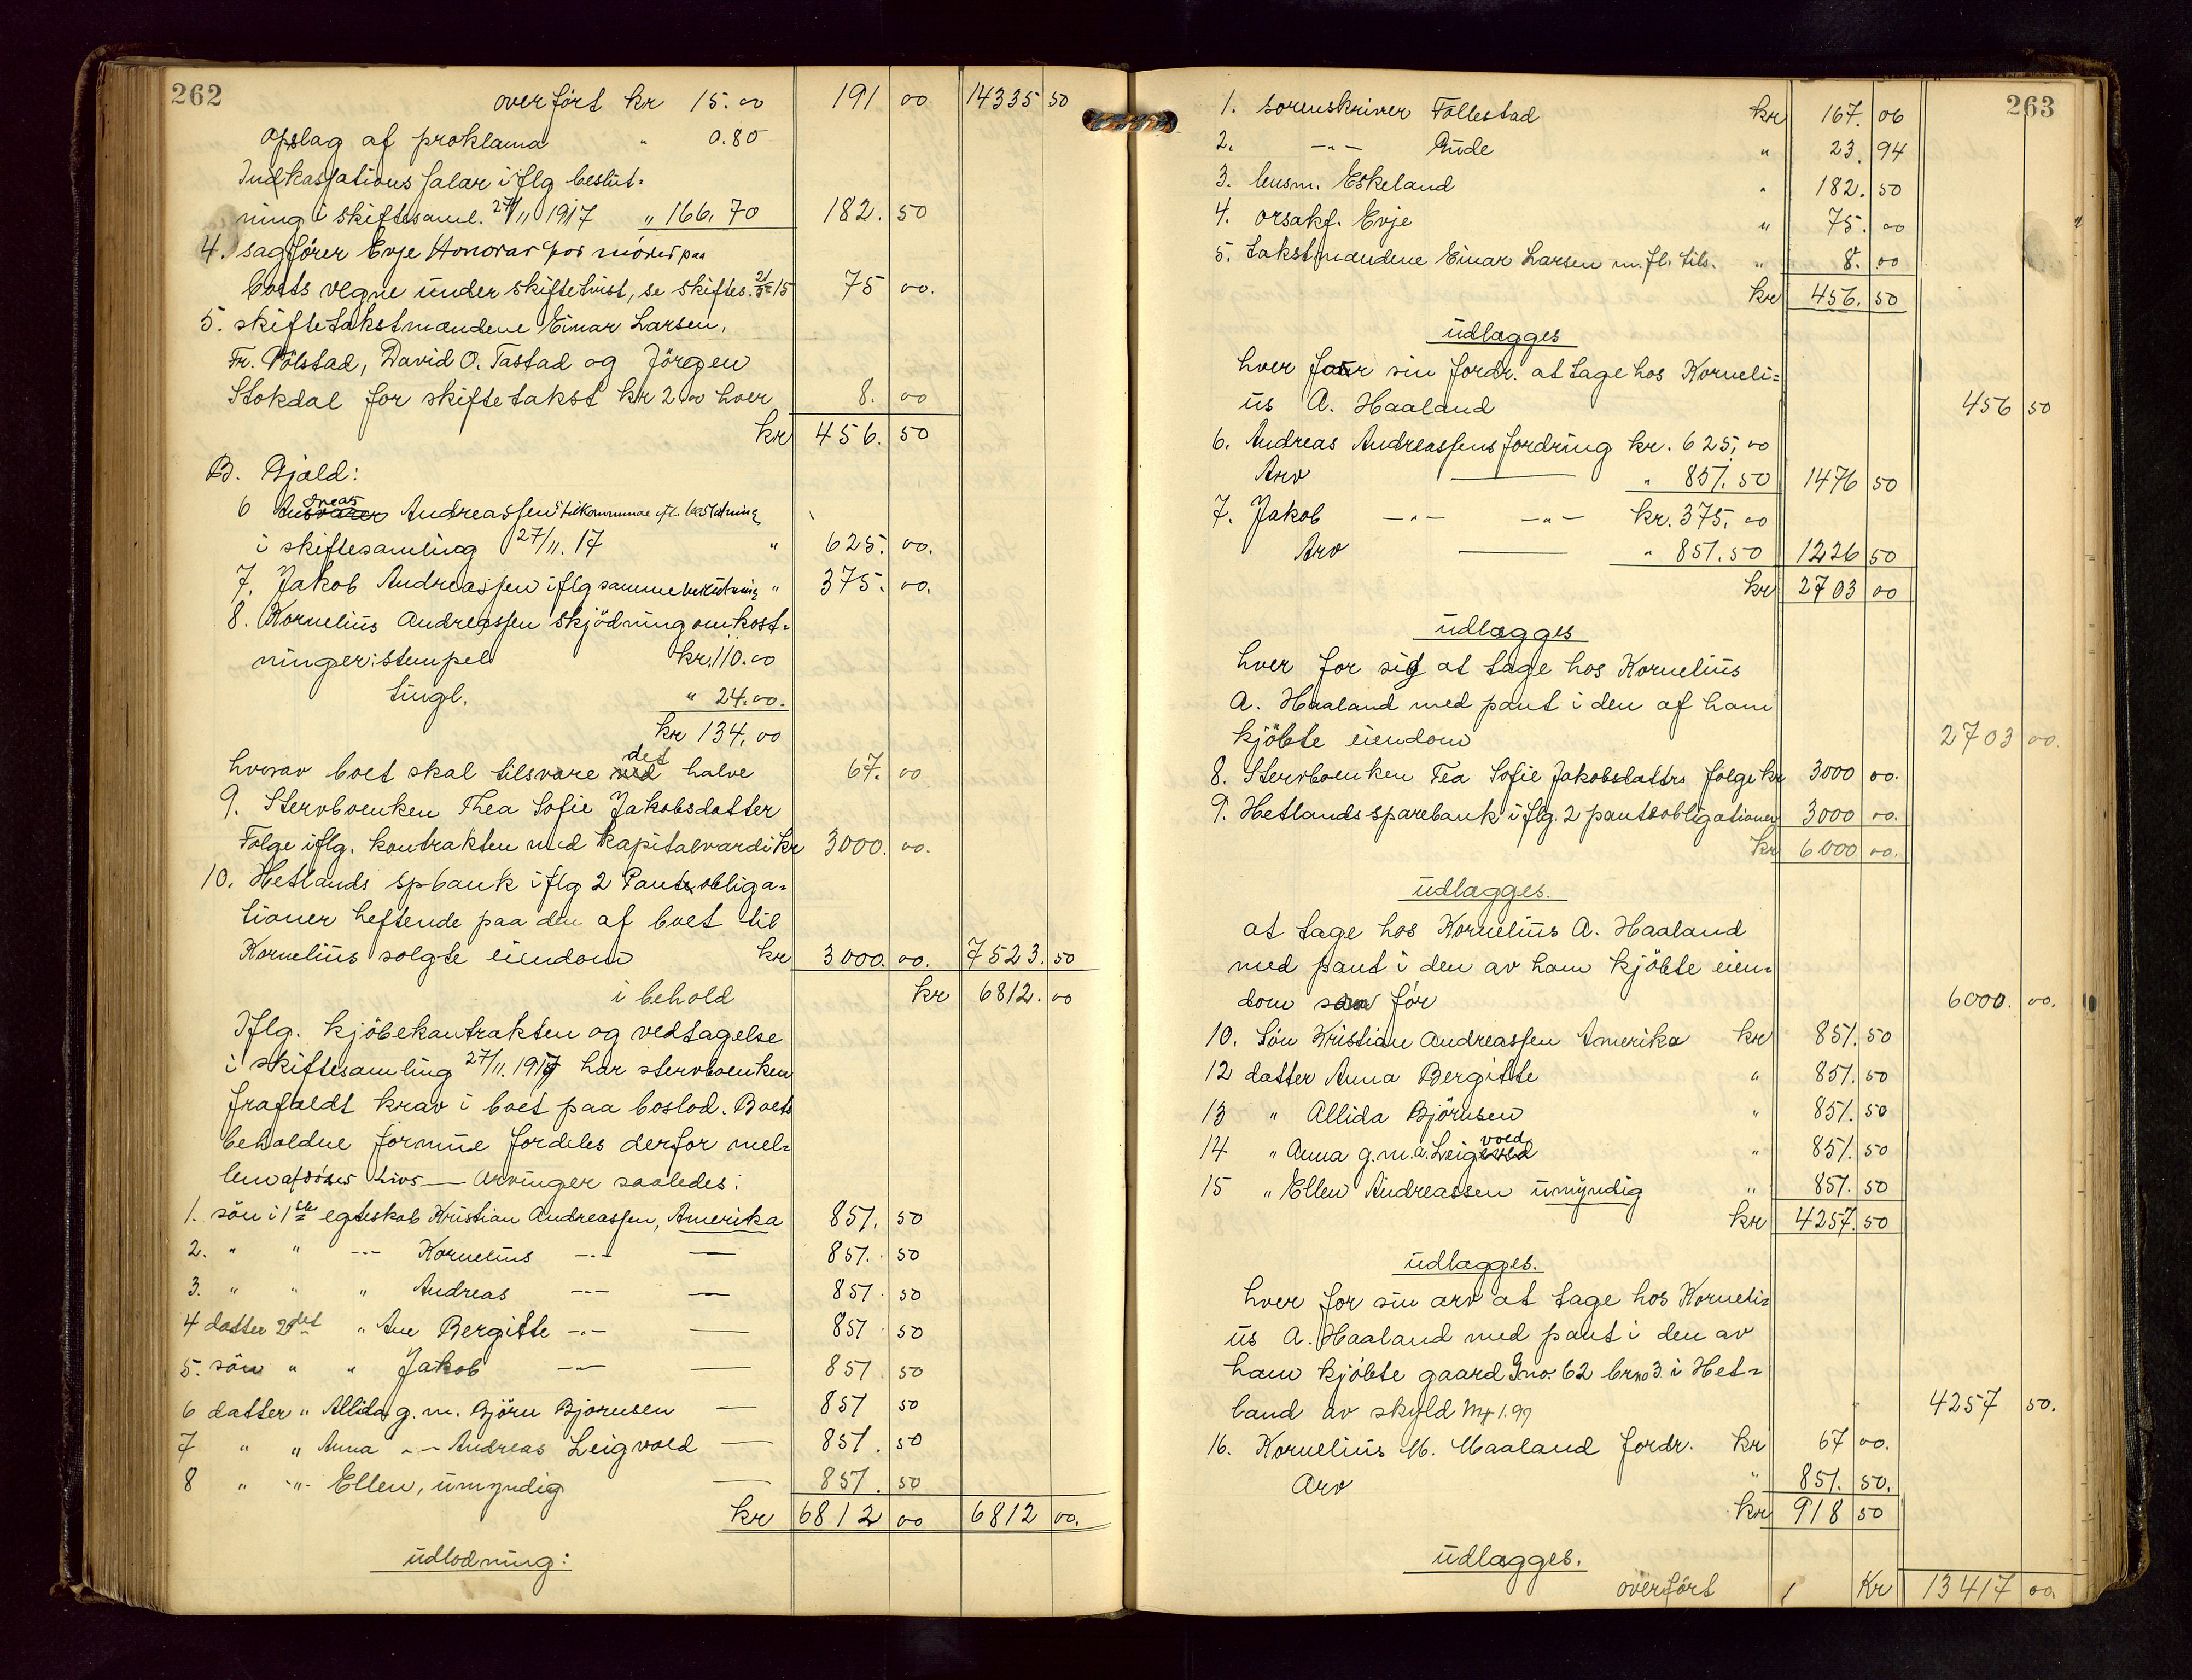 262
overført kr 15.00 191 00 14335 50
Opslag af proklama " 0.80
Indkassations salær iflg beslut-
ning i skiftesaml. 27/11 1917 " 166.70 182. 50
4. sagfører Evje Honorar for møder paa
boets vegne under skiftetvist, se skiftes. 15 75 00.
5. skiftetakstmændene Einar Larsen,
Fr. Pölstad, David O. Tastad og Jörgen
Stokdal for skiftetakst kr 2.00 hver 8. 00
kr 456. 50
B. Gjæld:
6 Andreas Andreassen tilkommende ifl. beslutning
i skiftesamling 27/11. 17 " 625. 00.
7. Jakob Andreassen iflg samme beslutning " 375. 00.
8. Kornelius Andreassen skjödningomkost-
ninger: stempel kr. 110.00
tingl. " 24.00.
kr 134,00
hvorav boet skal tilsvare det halve 67. 00
9. Stervboenken Thea Sofie Jakobsdatter
Følge iflg. kontrakten med kapitalværdi kr 3000. 00.
10. Hetlands spbank iflg 2 Panteobliga-
tioner heftende paa den af boet til
Kornelius solgte eiendom kr 3000. 00. 7523. 50
i behold kr 6812. 00
Iflg. kjöbekontrakten og vedtagelse
i skiftesamling 27/11. 1917 har stervboenken
frafaldt krav i boet paa boslod. Boets
beholdne formue fordeles derfor mel-
lem afdödes Livs — Arvinger saaledes:
1. sön i 1ste egteskab Kristian Andreassen, Amerika 851. 50
2. " " -"- Kornelius -"- — 851. 50
3. " " " Andreas -"- — 851. 50
4 datter 2det " Ane Bergitte -"- — 851. 50
5. sön " " Jakob -"- — 851. 50
6 datter " Allida g. m. Björn Bjornsen — 851 50
7 " " Anna -"- Andreas Leigvold — 851. 50
8 " -"- Ellen, umyndig — 851. 50
kr 6812 00 6812 00.
udlodning:
263
1. sorenskriver Föllestad kr 167. 06
2. -"- Gude " 23. 94
3. lensm. Eskeland " 182. 50
4. orsakf. Evje " 75. 00
5. takstmændene Einar Larsen m. fl. tils. " 8. 00
kr 456. 50
udlægges
hver for sin fordr. at tage hos Korneli-
us A. Haaland 456 50
6. Andreas Andreassens fordring kr. 625,00
Arv — " 851.50 1476 50
7. Jakob -"- -"- kr. 375,00
Arv — " 851.50 1226 50
kr 2703 00
udlægges
hver for sig at tage hos Kornelius
A. Haaland med pant i den af ham
kjöbte eiendom 2703 00.
8. Stervboenken Tea Sofie Jakobsdatters følge kr 3000 00.
9. Hetlands sparebank iflg. 2 panteobligationer 3000 00.
kr 6000 00.
udlægges.
at tage hos Kornelius A. Haaland
med pant i den av ham kjöbte eien-
dom som för 6000. 00.
10. Sön Kristian Andreassen Amerika kr 851. 50
12 datter Anna Bergitte " 851. 50
13 " Allida Björnsen " 851. 50
14 " Anna g. m. A. Leigvold " 851. 50
15 " Ellen Andreassen umyndig " 851. 50
kr 4257. 50
udlægges.
hver for sin arv at tage hos Korneli-
us A. Haaland med pant i den av
ham kjöbte gaard Gno. 62 brno 3 i Het-
land av skyld Mk 1.99 4257 50.
16. Kornelius M. Maaland fordr. kr 67 00.
Arv " 851. 50.
kr 918 50
udlægges.
overført Kr 13417 00.